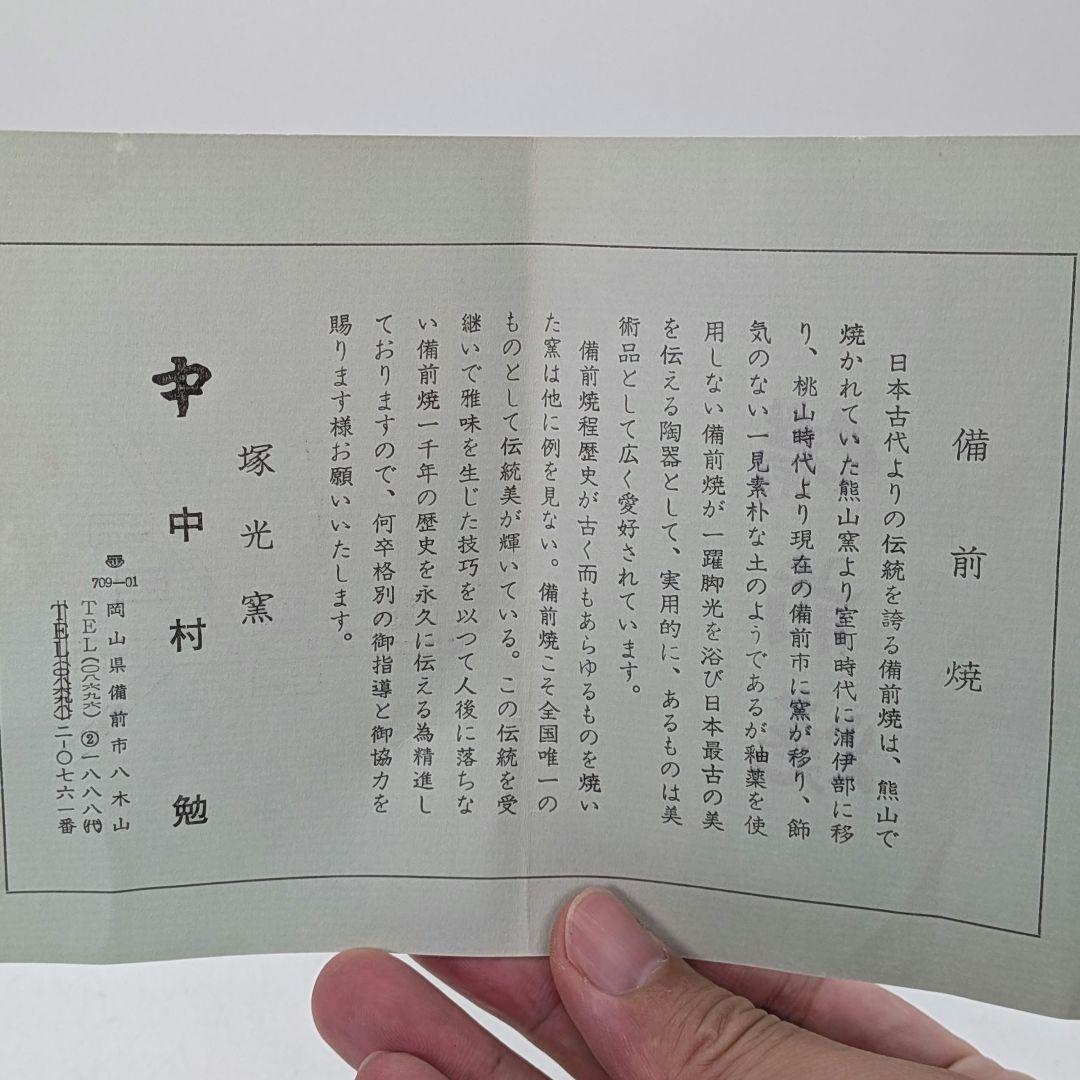 備前焼
日本古代よりの伝統を誇る備前焼は、熊山で
焼かれていた熊山窯より室町時代に浦伊部に移
り、桃山時代より現在の備前市に窯が移り、飾
気のない一見素朴な土のようであるが釉薬を使
用しない備前焼が一躍脚光を浴び日本最古の美
を伝える陶器として、実用的に、あるものは美
術品として広く愛好されています。
備前焼程歴史が古く而もあらゆるものを焼い
た窯は他に例を見ない。備前焼こそ全国唯一の
ものとして伝統美が輝いている。この伝統を受
継いで雅味を生じた技巧を以つて人後に落ちな
い備前焼一千年の歴史を永久に伝える為精進し
ておりますので、何卒格別の御指導と御協力を
賜ります様お願いいたします。
塚光窯
中 中村 勉
〒709―01 岡山県備前市八木山
TEL(〇八六九六)②一八八八(代)
TEL(〇八六九六)二-〇七六一番